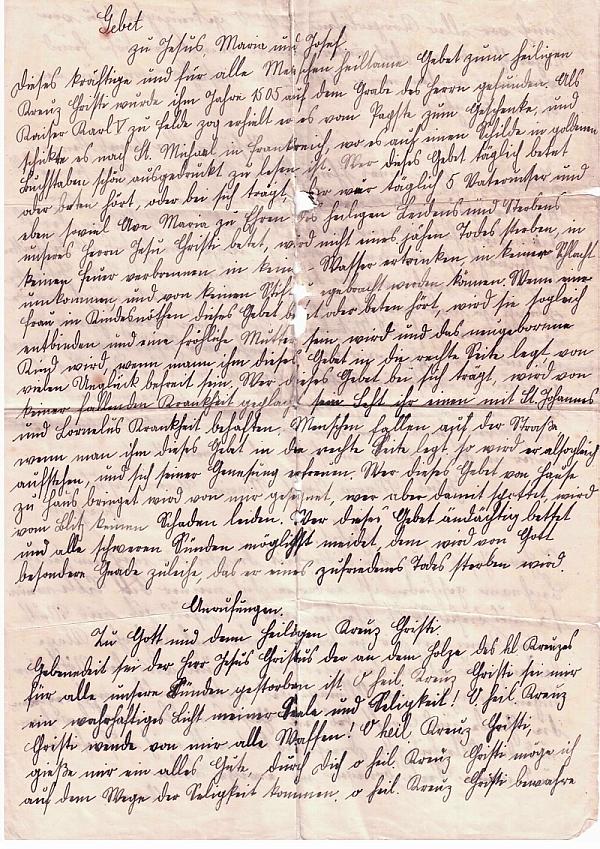 Gebet
zu Jesus Maria und Josef.
Dieses kräftige und für alle Menschen heilsame Gebet zum heiligen
Kreuz Christi wurde im Jahre 1505 auf dem Grabe des Herrn gefunden. Als
Kaiser Karl V zu Felde zog erhielt er es vom Papste zum Geschenke, und
schickte es nach St. Michael in Frankreich, wo es auf einen Schilde in goldenen
Buchstaben schön ausgedruckt zu lesen ist. Wer dieses Gebet täglich betet
oder beten hört, oder bei sich trägt, wer täglich 5 Vaterunser und
eben soviel Ave Maria zu Ehren des heiligen Leidens und Sterbens
unseres Herrn Jesu Christi betet, wird nicht eines jähen Todes sterben, in
keinen Feuer verbrennen, in kein Wasser ertrinken, in keiner Schlacht
umkommen und von keinen gebracht werden können. Wenn eine
Frau in Kindesnöthen dieses Gebet oder beten hört, wird sie sogleich
entbinden und eine fröhliche Mutter sein, wird und das neugeborene
Kind wird, wenn mann ihm dieses Gebet in die rechte Seite legt von
vielen Unglück befreit sein. Wer dieses Gebet bei sich trägt, wird von
keiner fallenden Krankheit geplagt sein mit St. Johannes
und Cornelius Krankheit behaften Menschen fallen auf der Straße
wenn man ihm dieses Gebet in die rechte Seite legt so wird er alsogleich
aufstehen, und sich seiner Genesung erfreuen. Wer dieses Gebet von Hause
zu Haus bringet wird von mir gesegnet, wer aber damit spottet, wird
vom Blitz keinen Schaden leiden. Wer dieses Gebet andächtig bettet
und alle schweren Sünden möglichst meidet, dem wird von Gott
besondere Gnade zuleihe, das er eines zufriedenes Todes sterben wird.
Anrufungen.
Zu Gott und denn heiligen Kreuz Christi.
Gebenedeit sei der Herr Jesus Christus der an dem Holze des hl Kreuzes
für alle unsere Sünden gestorben ist. O heil. Kreuz Christi sei mir
ein wahrhaftiges Licht meiner Seele und Seligkeit! O, heil. Kreuz
Christi wende von mir alle Waffen! O heil Kreuz Christi,
gieße mir ein alles Gute, durch Dich o heil. Kreuz Christi möge ich
auf dem Wege der Seligkeit kommen. o heil. Kreuz Christi bewahre